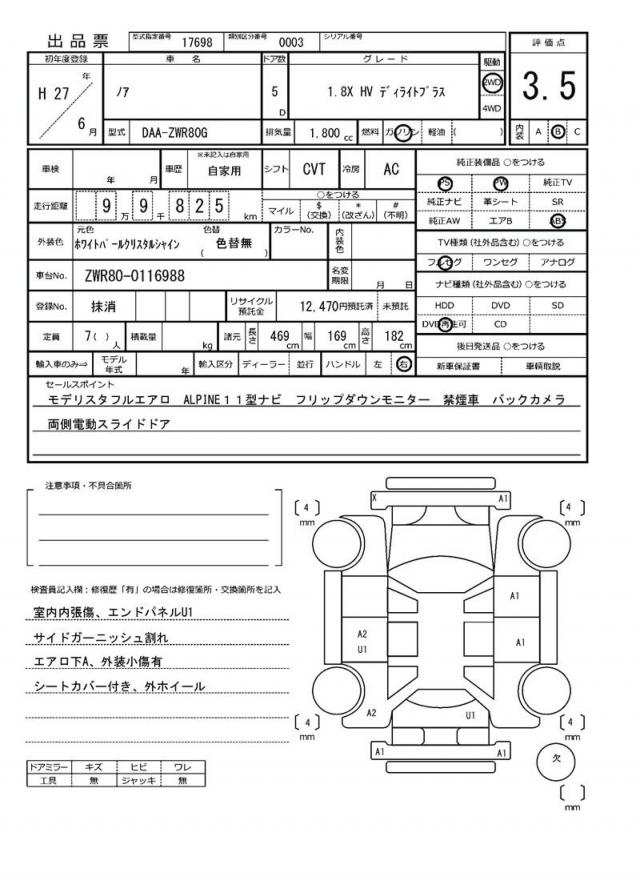 出品票 型式指定番号 17698 類別区分番号 0003 シリアル番号
初年度登録 車名 ドア数 グレード 駆動 評価点
H 27 年 6 月 ノア 5 D 1.8X HV ディライトプラス 2WD 4WD 3.5
型式 DAA-ZWR80G 排気量 1,800 cc 燃料 ガソリン 軽油 ( ) 内装 A B C
車検 年 月 車歴 ※未記入は自家用 自家用 シフト CVT 冷房 AC
走行距離 9 万 9 千 8 2 5 km ○をつける マイル $ (交換) * (改ざん) # (不明)
外装色 元色 ホワイトパールクリスタルシャイン 色替 ( 色替無 ) カラーNo. 内装色
車台No. ZWR80-0116988 名変期限 月 日
登録No. 抹消 リサイクル預託金 12,470円預託済 未預託
定員 7( ) 人 積載量 kg 諸元 長さ 469 cm 幅 169 cm 高さ 182 cm
輸入車のみ⇒ モデル年式 年 輸入区分 ディーラー 並行 ハンドル 左 右
純正装備品 ○をつける
PS PW 純正TV
純正ナビ 革シート SR
純正AW エアB ABS
TV種類 (社外品含む) ○をつける
フルセグ ワンセグ アナログ
ナビ種類 (社外品含む) ○をつける
HDD DVD SD
DVD再生可 CD
後日発送品 ○をつける
新車保証書 車輌取説
セールスポイント
モデリスタフルエアロ ALPINE11型ナビ フリップダウンモニター 禁煙車 バックカメラ
両側電動スライドドア
注意事項・不具合箇所
検査員記入欄：修復歴「有」の場合は修復箇所・交換箇所を記入
室内内張傷、エンドパネルU1
サイドガーニッシュ割れ
エアロ下A、外装小傷有
シートカバー付き、外ホイール
ドアミラー キズ ヒビ ワレ
工具 無 ジャッキ 無
X A1
[ 4 ] mm [ 4 ] mm
A1
A2
U1 A1
A2 U1
[ 4 ] mm [ 4 ] mm
A1 A1
欠
[ ] mm